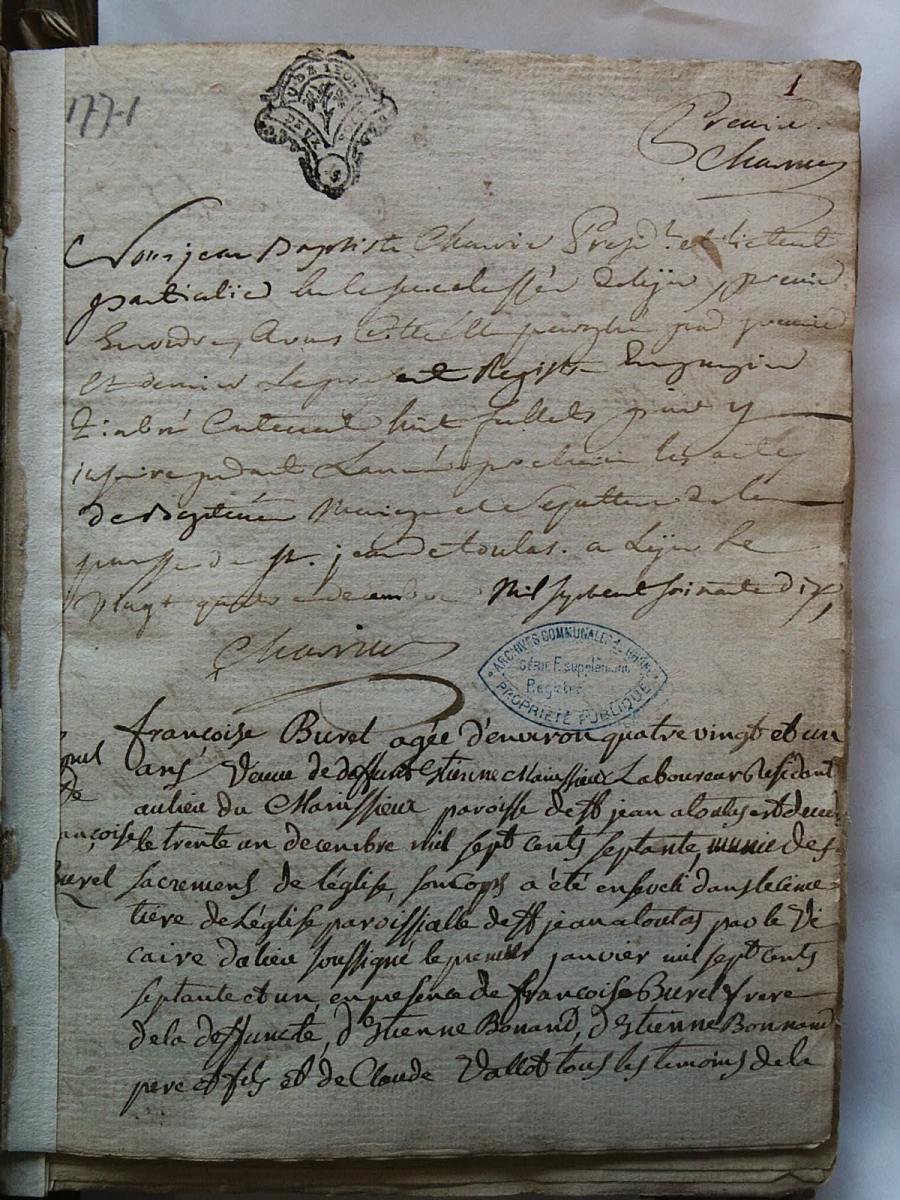 1771
1
DE LYON
DEUX
premier
Charrier
Nous jean Baptiste Charrier Presidt. et Lieutenant
particulier en la senechaussée de Lyon, premier
En ordre, Avons Cotté et paraphé par premier
Et dernier Le present Registre En papier
Timbré Contenant huit feuillets pour y
inscrire pendant L'année prochaine les actes
de Bapteme Mariage et Sepulture de la
paroisse de st. jean de toulas. a Lyon le
Vingt quatre decembre Mil sept cent soixante dix,
Charrier
ARCHIVES COMMUNALES RHÔNE
SÉRIE E. supplément
Registre
PROPRIÉTÉ PUBLIQUE
françoise Burel agée d'environ quatre vingt et un
ans Veuve de deffunt Etienne Mainssieux Laboureur Residant
au lieu du Mainssieux paroisse de st jean a toulas est decedé
le trente un decembre mil sept cents septante, munie des
sacremens de l'église, son Corps a été enseveli dans le cime=
tière de L'église paroissialle de st jean a toulas par le Vi
caire dalieu soussigné le premier janvier mil sept cents
septante et un en presence de françoise Burel frere
de la deffuncte, d'Etienne Bonand, d'Etienne Bonnand
pere et fils et de Claude Vallot tous les temoins de la
ançoise
Burel